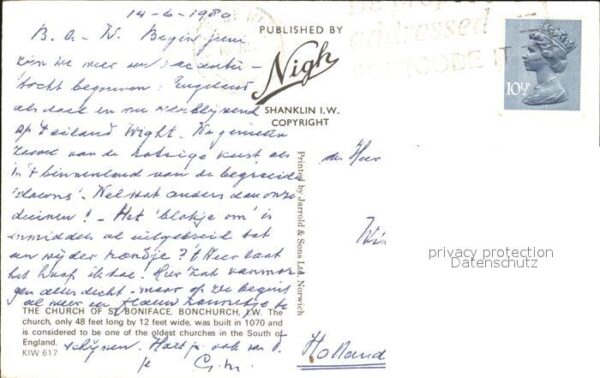 14-6-1980
B. en W. Begin juni
zijn we weer een vacantie-
tocht begonnen: Engeland
als doel en nu verblijvend
op 't eiland Wight. We genieten
zowel van de rotsige kust als
in 't binnenland van de begroeide
'downs'. Wel wat anders dan onze
duinen! - Het 'blokje om' is
inmiddels al uitgebreid tot
een wijder rondje? 't Weer laat
het hoop ik toe. Hier zat vanmor-
gen alles dicht - maar op zee begint
al weer een flauw zonnetje te
schijnen. Hartje ook van
je G.M.
PUBLISHED BY
Nigh
SHANKLIN I.W.
COPYRIGHT
Be properly
addressed
POSTCODE IT
10½P
Printed by Jarrold & Sons Ltd, Norwich
den Heer
Holland
privacy protection
Datenschutz
THE CHURCH OF ST. BONIFACE, BONCHURCH, I.W. The
church, only 48 feet long by 12 feet wide, was built in 1070 and
is considered to be one of the oldest churches in the South of
England.
KIW 617